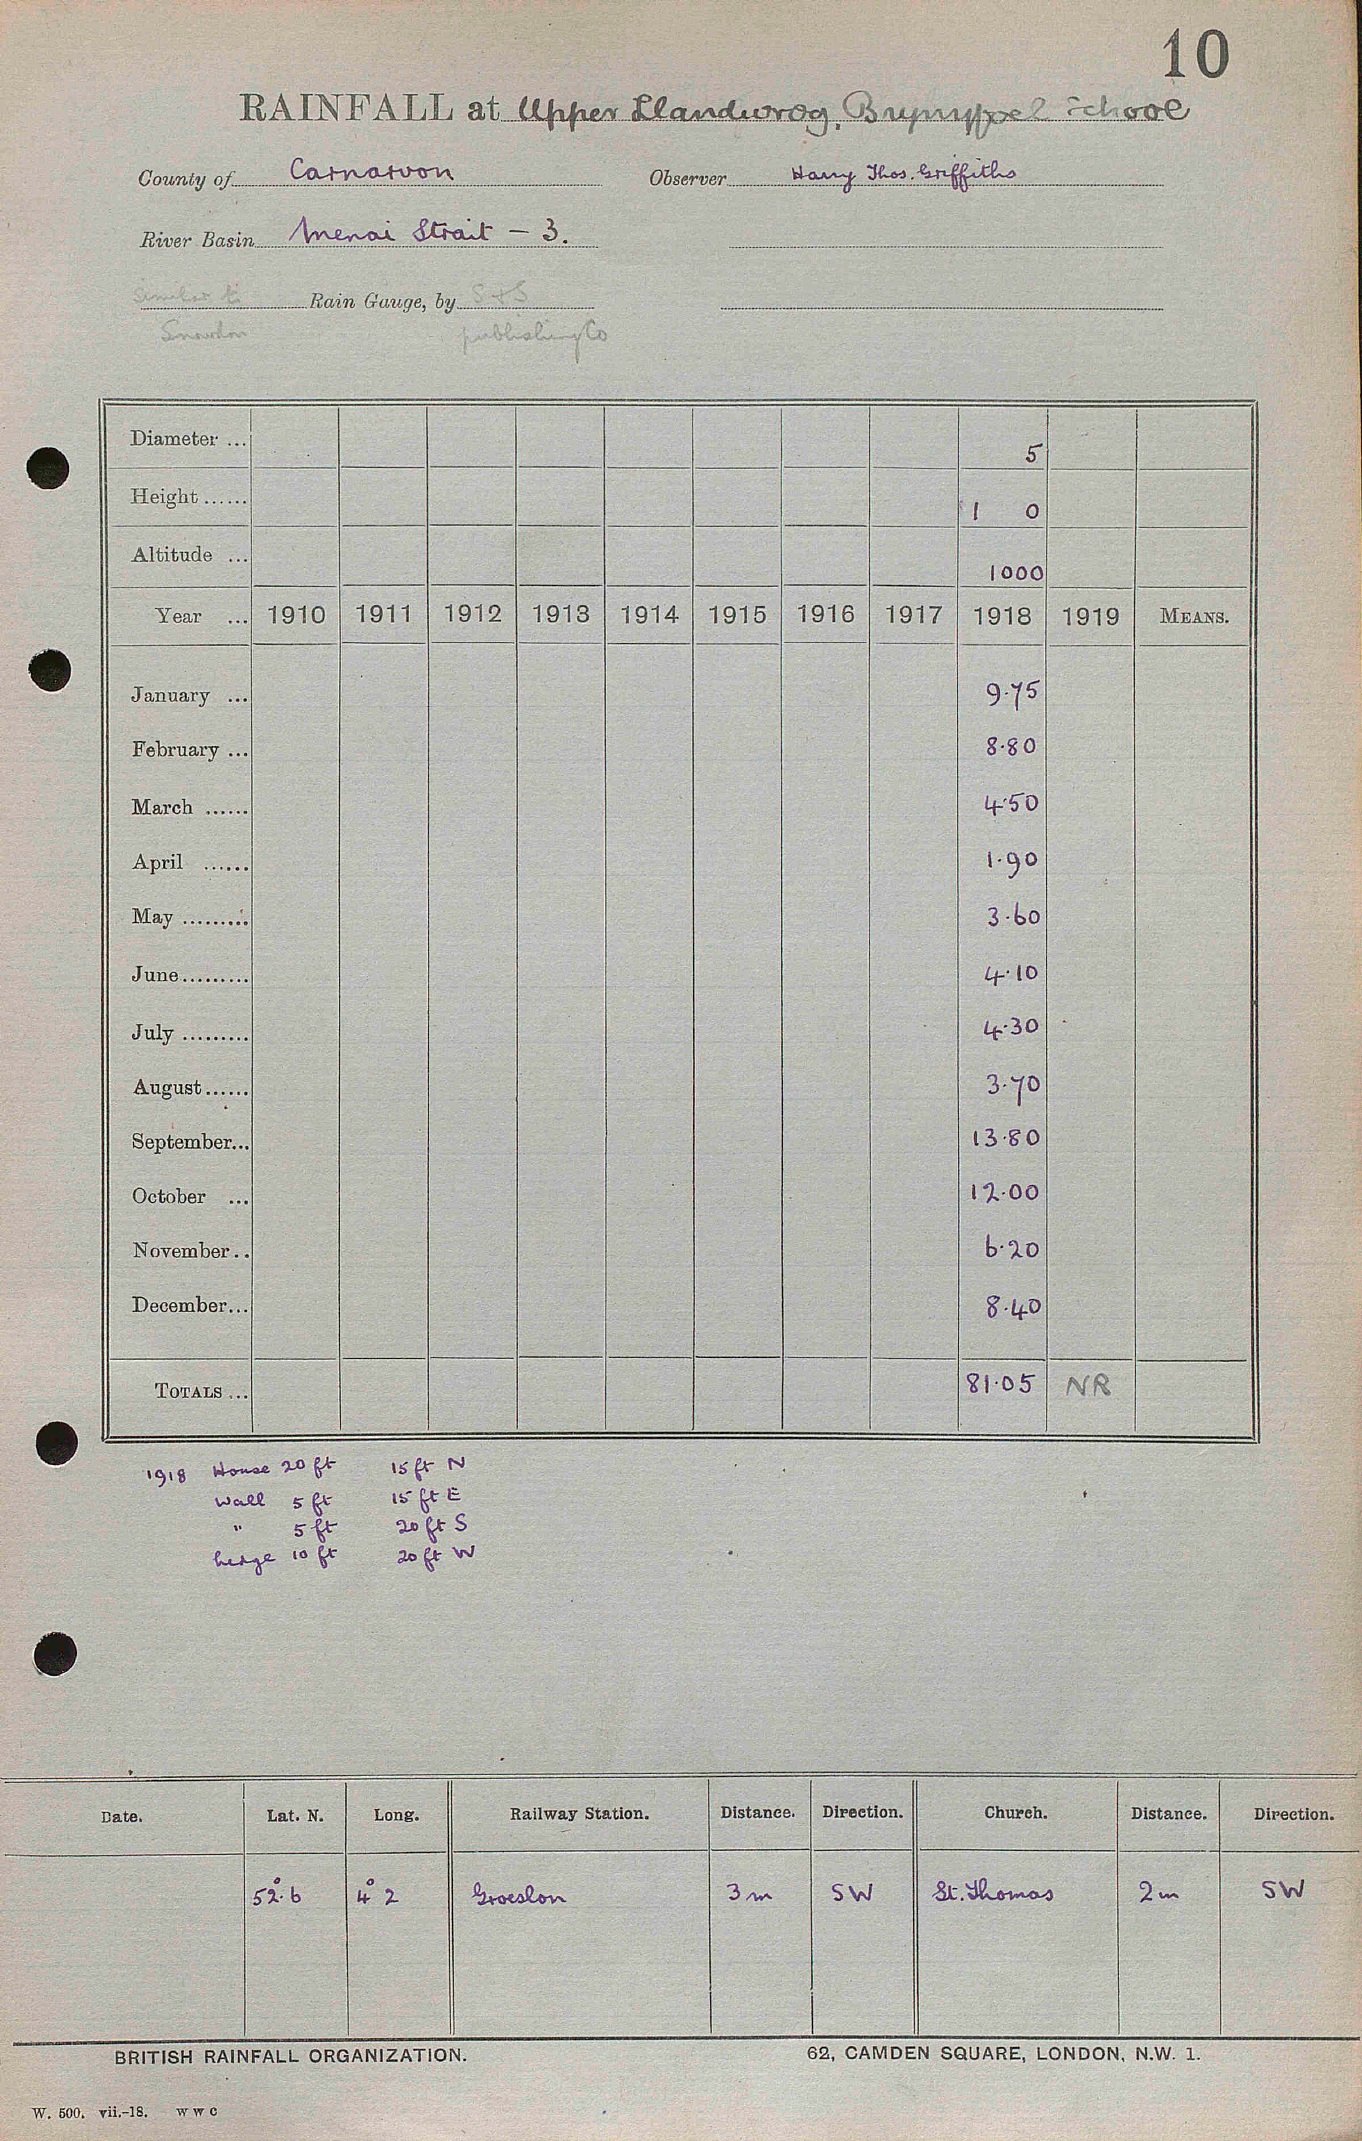 10
RAINFALL at Upper Llandwrog, Brynyffoel School
County of Carnarvon Observer Harry Thos. Griffiths
River Basin Menai Strait - 3.
Similar to Rain Gauge, by S & S
Snowdon publishing Co
Diameter ... 5
Height ...... 1 0
Altitude ... 1000
Year ... 1910 1911 1912 1913 1914 1915 1916 1917 1918 1919 MEANS.
January ... 9.75
February ... 8.80
March ...... 4.50
April ...... 1.90
May ......... 3.60
June......... 4.10
July ......... 4.30
August...... 3.70
September... 13.80
October ... 12.00
November.. 6.20
December... 8.40
TOTALS ... 81.05 NR
1918 House 20 ft 15 ft N
Wall 5 ft 15 ft E
" 5 ft 20 ft S
hedge 10 ft 20 ft W
Date. Lat. N. Long. Railway Station. Distance. Direction. Church. Distance. Direction.
52°.6 4° 2 Groeslon 3 m SW St. Thomas 2 m SW
BRITISH RAINFALL ORGANIZATION. 62, CAMDEN SQUARE, LONDON, N.W. 1.
W. 500. vii.-18. W W C